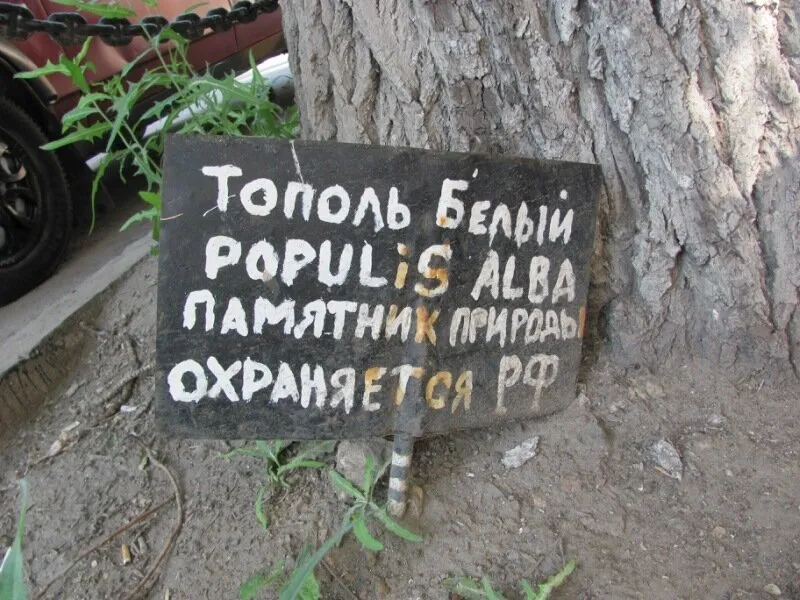 Тополь Белый
POPULiS ALBA
ПАМЯТНИК ПРИРОДЫ
ОХРАНЯЕТСЯ РФ